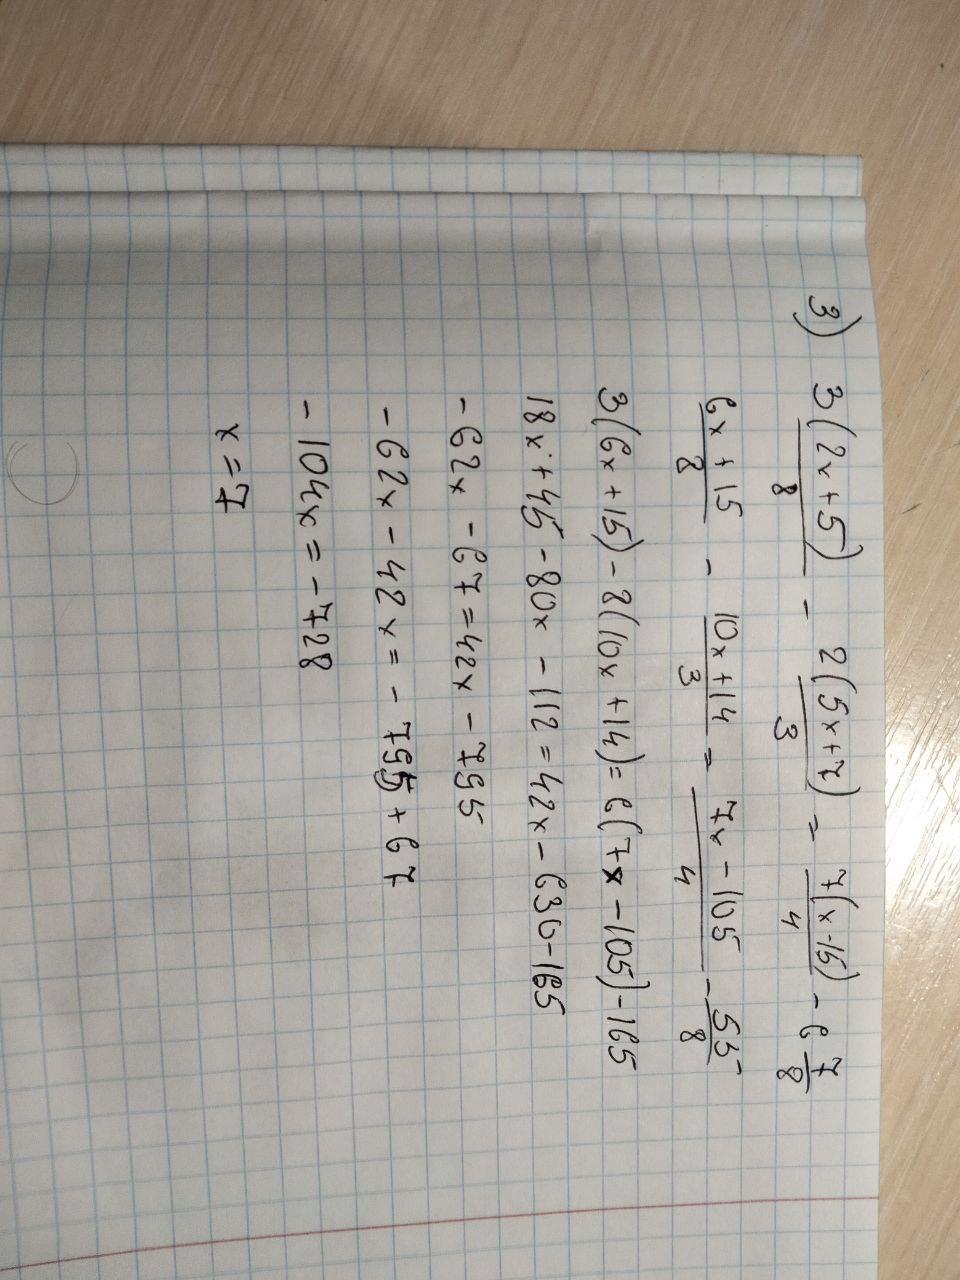 3) 3(2x+5)/8 - 2(5x+7)/3 = 7(x-15)/4 - 6 7/8
6x+15/8 - 10x+14/3 = 7x-105/4 - 55/8
3(6x+15)-8(10x+14)=6(7x-105)-165
18x+45-80x-112=42x-630-165
-62x-67=42x-795
-62x-42x=-795+67
-104x=-728
x=7